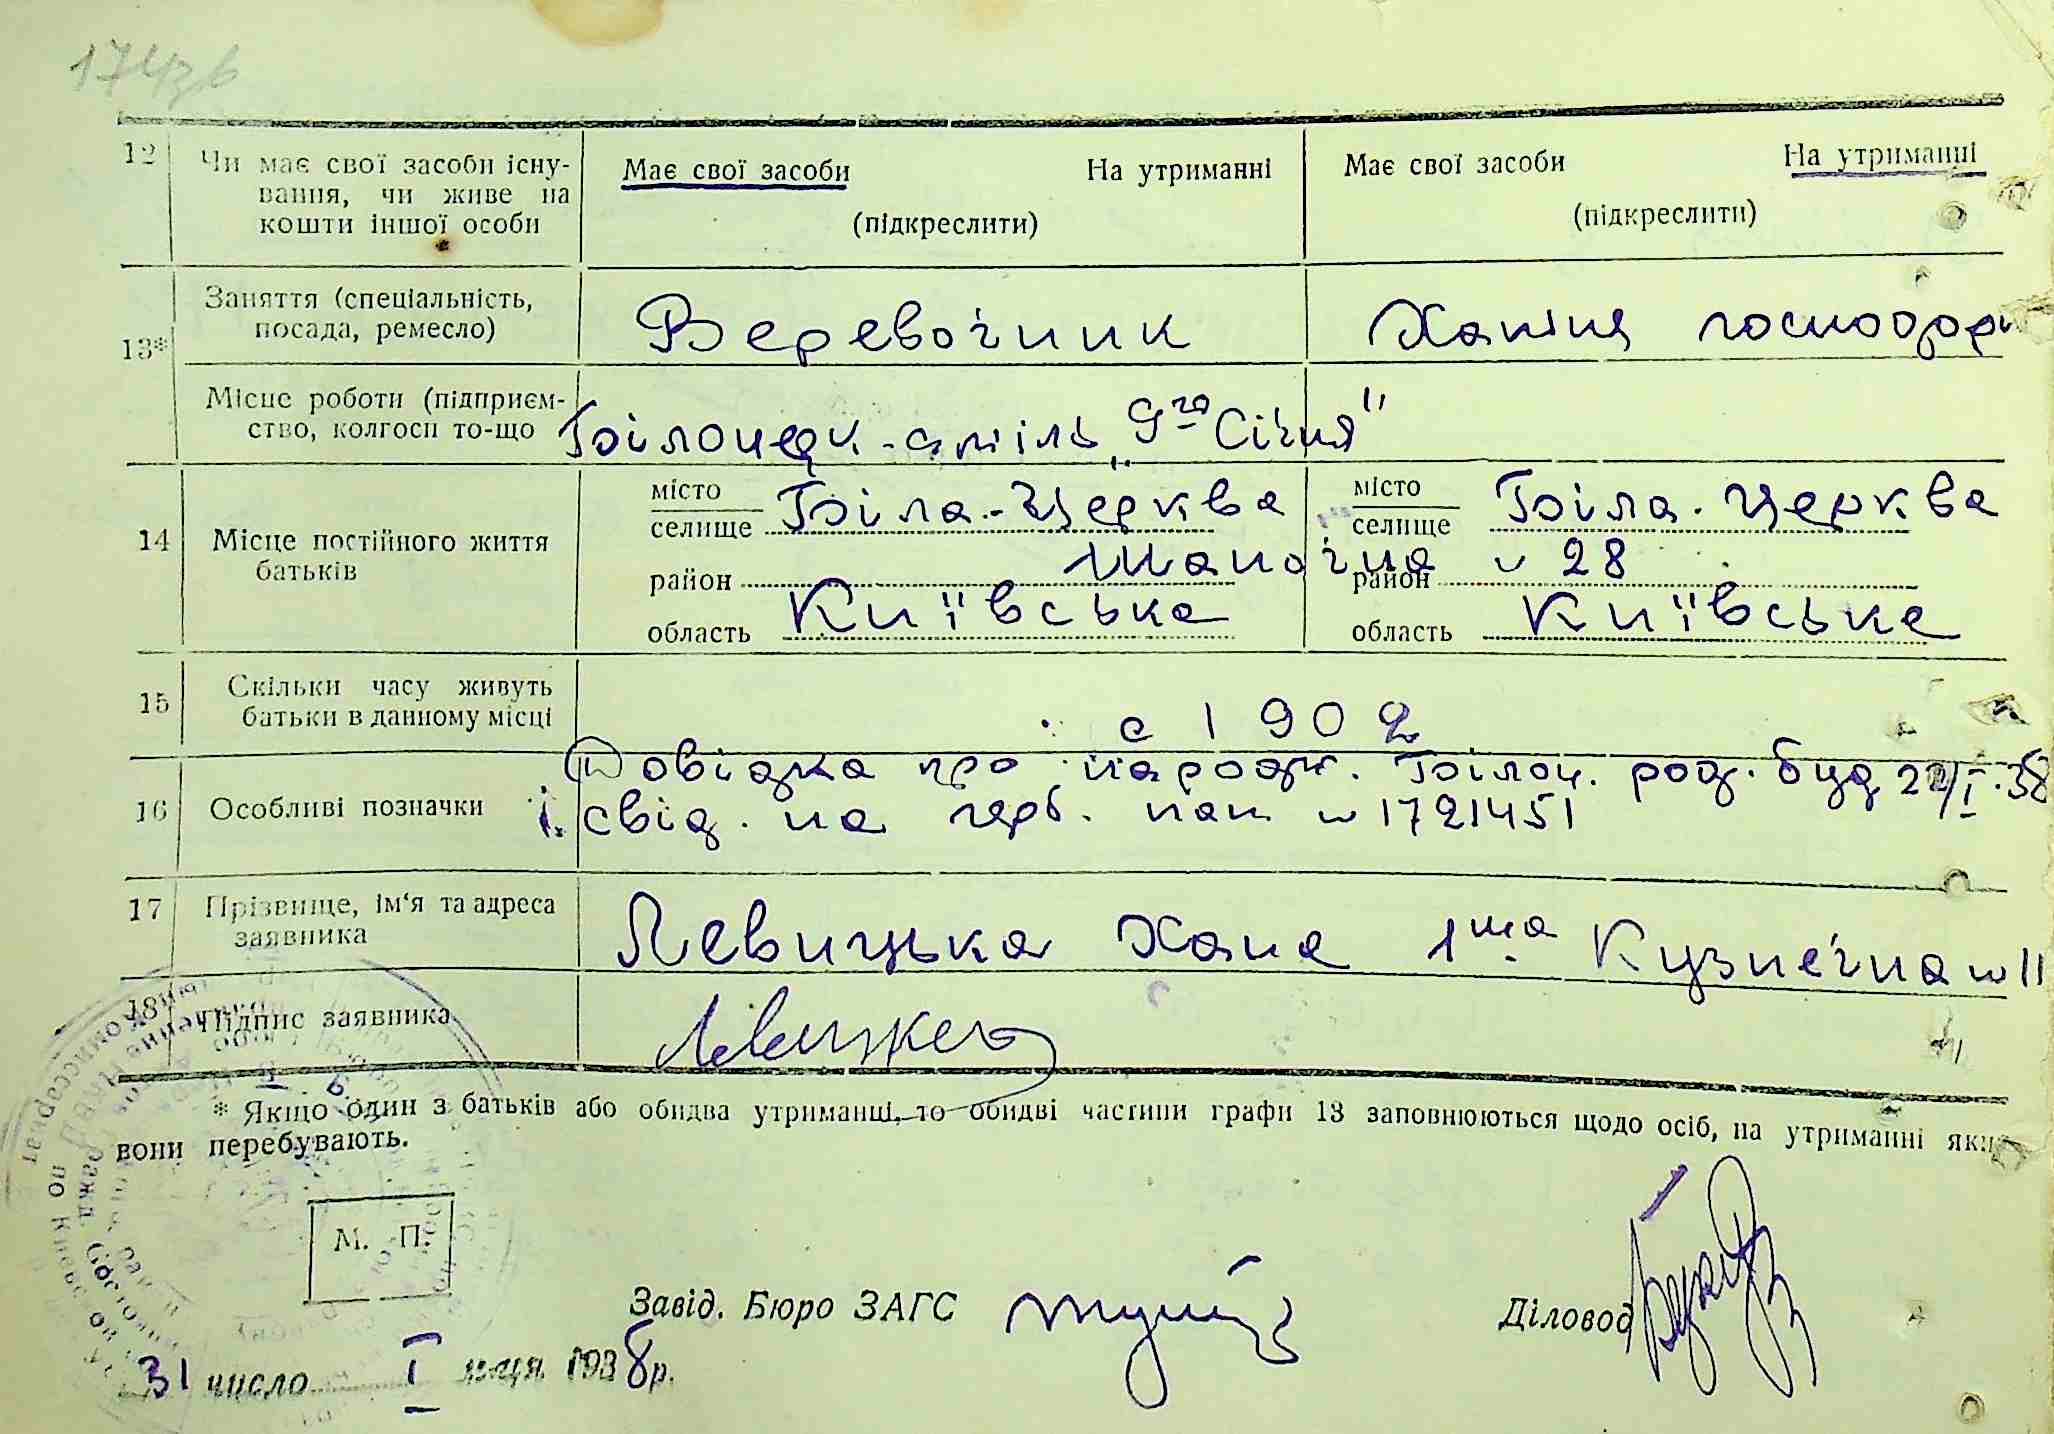 174зв
12 Чи має свої засоби існу- Має свої засоби На утриманні Має свої засоби На утриманні
вання, чи живе на
кошти іншої особи (підкреслити) (підкреслити)
13* Заняття (спеціальність, Веревочник Хатня господар
посада, ремесло)
Місце роботи (підприєм-
ство, колгосп то-що Білоцерк. артіль „9го Січня"
14 Місце постійного життя місто Біла-Церква місто Біла-Церква
батьків селище селище
район район № 28
область Київська область Київська
15 Скільки часу живуть
батьки в данному місці с 1902
16 Особливі позначки Довідка про народж. Білоц. род. буд 22/I.38
і свід. на перб. пат № 1721451
17 Прізвище, ім'я та адреса
заявника Левицька Хана 1ша Кузнечна № 11
18 Підпис заявника
* Якщо один з батьків або обидва утриманці, то обидві частини графи 13 заповнюються щодо осіб, на утриманні яких
вони перебувають.
М. П.
Завід. Бюро ЗАГС Діловод
31 число I м-ця 1938 р.